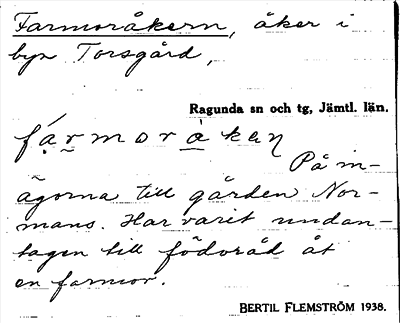 Farmoråkern, åker i
byn Torsgård,
Ragunda sn och tg, Jämtl. län.
fármoràkaɳ
På in-
ägorna till gården Nor-
mans. Har varit undan-
tagen till födoråd åt
en farmor.
BERTIL FLEMSTRÖM 1938.